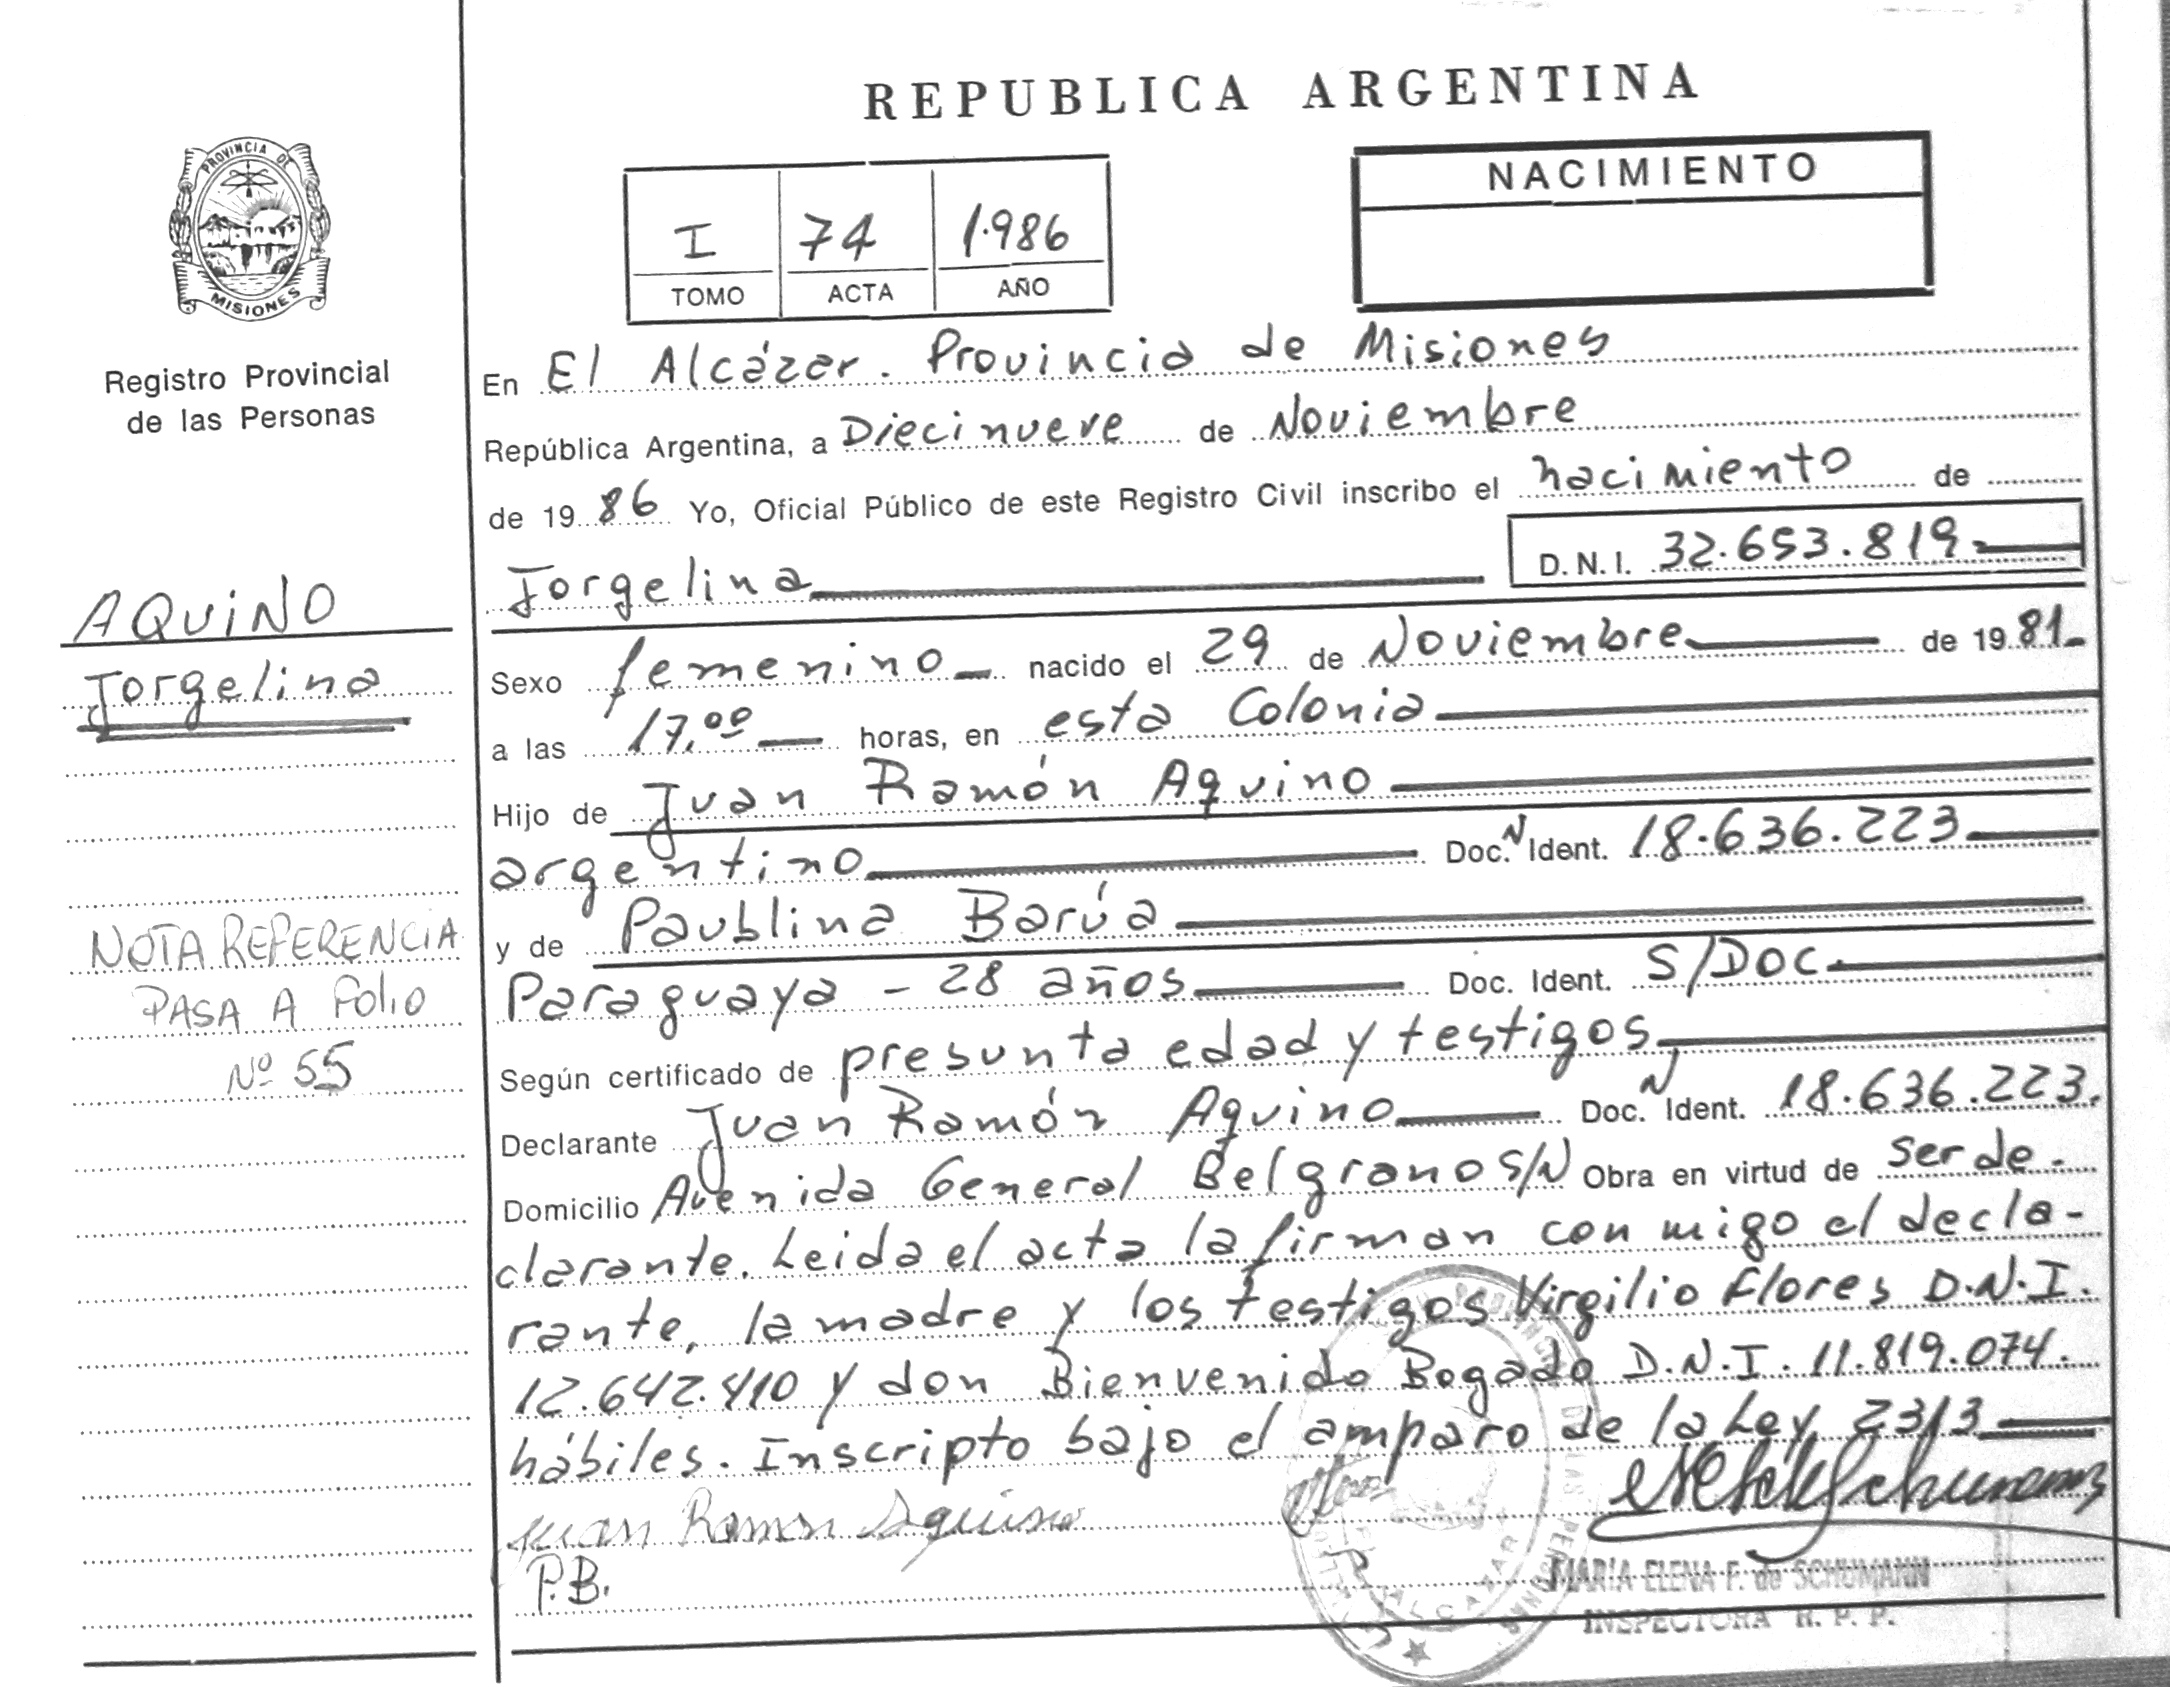 REPUBLICA ARGENTINA
PROVINCIA DE
MISIONES
Registro Provincial
de las Personas
I 74 1.986
TOMO ACTA AÑO
NACIMIENTO
En El Alcázar. Provincia de Misiones
República Argentina, a Diecinueve de Noviembre
de 1986 Yo, Oficial Público de este Registro Civil inscribo el nacimiento de
Jorgelina D.N.I. 32.653.819
AQUINO
Jorgelina
Sexo femenino nacido el 29 de Noviembre de 1981
a las 17,00 horas, en esta Colonia
Hijo de Juan Ramón Aquino
argentino Doc. N Ident. 18.636.223
y de Paublina Barúa
Paraguaya - 28 años Doc. Ident. S/DOC
NOTA REFERENCIA
PASA A FOLIO
Nº 55
Según certificado de presunta edad y testigos
Declarante Juan Ramón Aquino Doc. N Ident. 18.636.223.
Domicilio Avenida General Belgrano S/N Obra en virtud de ser de-
clarante. Leida el acta la firman con migo el decla-
rante, la madre y los testigos Virgilio Flores D.N.I.
12.642.410 y don Bienvenido Bogado D.N.I. 11.819.074.
hábiles. Inscripto bajo el amparo de la Ley 2313
Juan Ramon Aquino
P.B.
MARIA ELENA F. de SCHUMANN
INSPECTORA R. P. P.